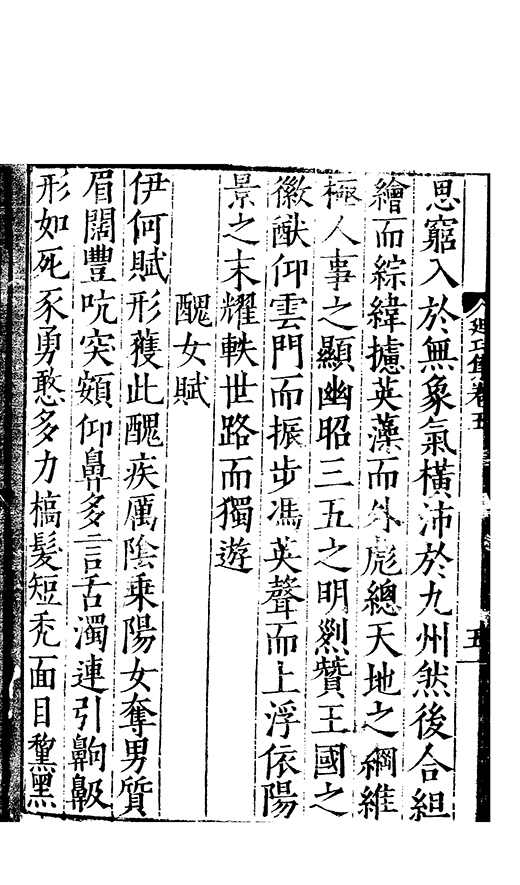 思窮入於無象氣橫沛於九州然後合組
繪而綜緯攄英藻而外彪總天地之綱維
極人事之顯幽昭三五之明烈贊王國之
徽猷仰雲門而振步馮英聲而上浮依陽
景之末耀軼世路而獨遊
醜女賦
伊何賦形獲此醜疾厲陰乗陽女奪男質
眉闊豐吭突頞仰鼻多言舌濁連引齁鼾
形如死豕勇憨多力槁髮短秃面目黧黑
卷五
五